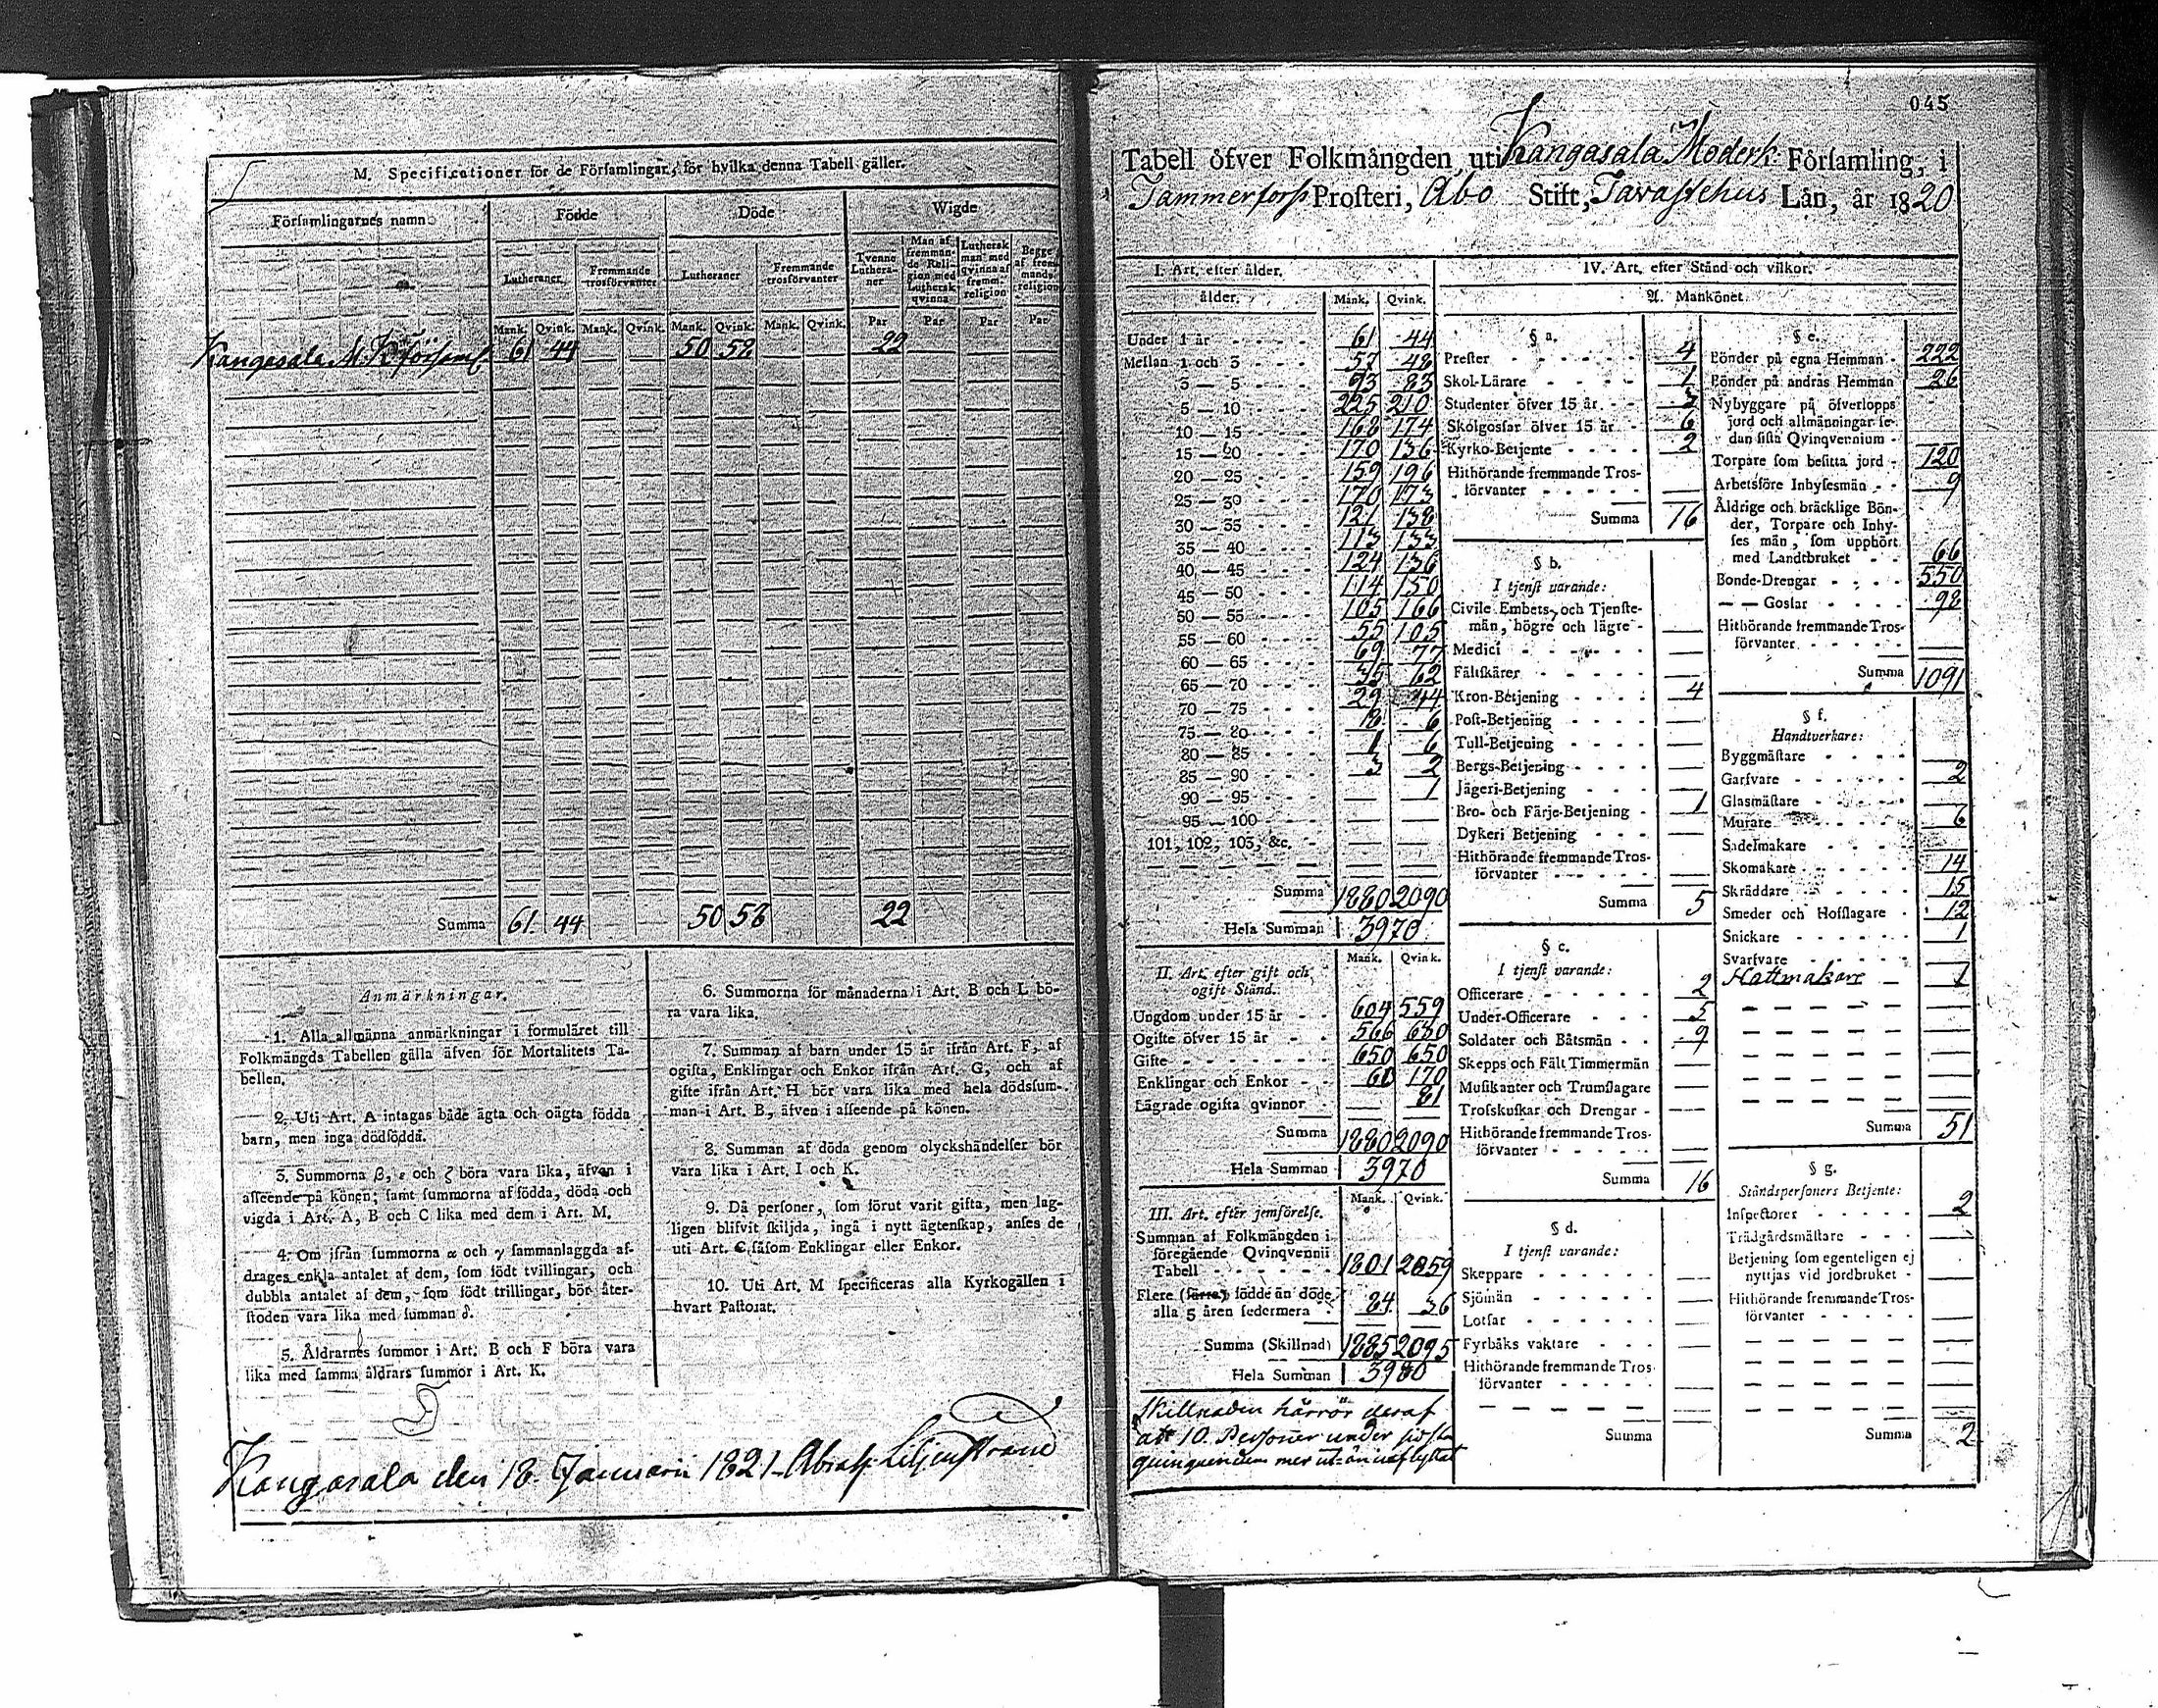 M. Specificationer för de Församlingar, för hvilka denna Tabell gäller.
Församlingarnes namn. Födde Döde Wigde
Lutheraner Fremmande trosförvanter Lutheraner Fremmande trosförvanter Tvenne Lutheraner Man af fremmande Religion med Luthersk qvinna Luthersk man med qvinna af fremm. religion Begge af fremmande religion
Mank. Qvink. Mank. Qvink. Mank. Qvink. Mank. Qvink. Par Par Par Par
Kangasala M. K. församl 61 44 — — — — 50 58 — — — — 22
Summa 61 44 50 58 22
Anmärkningar.
1. Alla allmänna anmärkningar i formuläret till
Folkmängds Tabellen gälla äfven för Mortalitets Ta-
bellen.
2. Uti Art. A intagas både ägta och oägta födda
barn, men inga dödfödda.
3. Summorna β, ε och ζ böra vara lika, äfven i
afseende på könen; samt summorna af födda, döda och
vigda i Art. A, B och C lika med dem i Art. M.
4. Om ifrån summorna α och γ sammanlaggda af-
drages enkla antalet af dem, som födt tvillingar, och
dubbla antalet af dem, som födt trillingar, bör åter-
stoden vara lika med summan δ.
5. Åldrarnes summor i Art. B och F böra vara
lika med samma åldrars summor i Art. K.
6. Summorna för månaderna i Art. B och L bö-
ra vara lika.
7. Summan af barn under 15 år ifrån Art. F, af
ogifta, Enklingar och Enkor ifrån Art. G, och af
gifte ifrån Art. H bör vara lika med hela dödssum-
man i Art. B, äfven i afseende på könen.
8. Summan af döda genom olyckshändelser bör
vara lika i Art. I och K.
9. Då personer, som förut varit gifta, men lag-
ligen blifvit skiljda, ingå i nytt ägtenskap, anses de
uti Art. C såsom Enklingar eller Enkor.
10. Uti Art. M specificeras alla Kyrkogällen i
hvart Pastorat.
Kangasala den 18 Januarii 1821 Abrah. Liljenstrand
045
Tabell öfver Folkmängden uti Kangasala Moderk. Församling, i
Tammerfors Prosteri, Åbo Stift, Tavastehus Län, år 1820
I. Art. efter ålder.
ålder. Mank. Qvink.
Under 1 år 61 44
Mellan 1 och 3 57 48
3 — 5 93 83
5 — 10 225 210
10 — 15 168 174
15 — 20 170 136
20 — 25 159 196
25 — 30 170 173
30 — 35 121 138
35 — 40 113 133
40 — 45 124 136
45 — 50 114 150
50 — 55 105 166
55 — 60 55 105
60 — 65 69 77
65 — 70 35 62
70 — 75 29 44
75 — 80 8 6
80 — 85 1 6
85 — 90 3 2
90 — 95 — 1
95 — 100 — —
101, 102, 103, &c. — —
Summa 1880 2090
Hela Summan 3970
II. Art. efter gift och ogift Stånd. Mank. Qvink.
Ungdom under 15 år 604 559
Ogifte öfver 15 år 566 630
Gifte 650 650
Enklingar och Enkor 60 170
Lägrade ogifta qvinnor — 81
Summa 1880 2090
Hela Summan 3970
III. Art. efter jemförelse. Mank. Qvink.
Summan af Folkmängden i
föregående Qvinqvennii
Tabell 1801 2059
Flere (färre) födde än döde
alla 5 åren sedermera 84 36
Summa (Skillnad) 1885 2095
Hela Summan 3980
Skillnaden härrör deraf
att 10. Personer under sista
quinquennium mer ut- än inflyttat
IV. Art. efter Stånd och vilkor.
A. Mankönet.
§ a.
Prester 4
Skol-Lärare 1
Studenter öfver 15 år 3
Skolgossar öfver 15 år 6
Kyrko-Betjente 2
Hithörande fremmande Tros-
förvanter —
Summa 16
§ b.
I tjenst varande:
Civile Embets- och Tjenste-
män, högre och lägre —
Medici —
Fältskärer —
Kron-Betjening 4
Post-Betjening —
Tull-Betjening —
Bergs-Betjening —
Jägeri-Betjening —
Bro- och Färje-Betjening 1
Dykeri Betjening —
Hithörande fremmande Tros-
förvanter —
Summa 5
§ c.
I tjenst varande:
Officerare 2
Under-Officerare 5
Soldater och Båtsmän 9
Skepps och Fält Timmermän —
Musikanter och Trumslagare —
Trosskuskar och Drengar —
Hithörande fremmande Tros-
förvanter —
Summa 16
§ d.
I tjenst varande:
Skeppare —
Sjömän —
Lotsar —
Fyrbåks vaktare —
Hithörande fremmande Tros-
förvanter —
Summa
§ e.
Bönder på egna Hemman 222
Bönder på andras Hemman 26
Nybyggare på öfverlopps
jord och allmänningar se-
dan sista Qvinqvennium —
Torpare som besitta jord 120
Arbetsföre Inhysesmän 9
Åldrige och bräcklige Bön-
der, Torpare och Inhy-
ses män, som upphört
med Landtbruket 66
Bonde-Drengar 550
— — Gossar 98
Hithörande fremmande Tros-
förvanter —
Summa 1091
§ f.
Handtverkare:
Byggmästare —
Garfvare 2
Glasmästare —
Murare 6
Sadelmakare —
Skomakare 14
Skräddare 15
Smeder och Hofslagare 12
Snickare 1
Svarfvare —
Hattmakare 1
Summa 51
§ g.
Ståndspersoners Betjente:
Inspectorer 2
Trädgårdsmästare —
Betjening som egenteligen ej
nyttjas vid jordbruket —
Hithörande fremmande Tros-
förvanter —
Summa 2